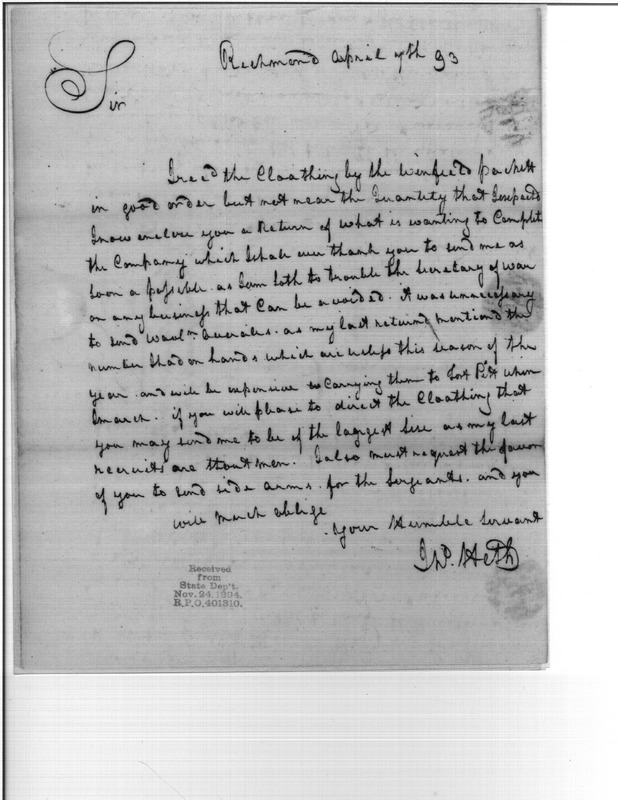 Richmond April 7th 93
Sir
I rec'd the Cloathing by the Winfield packett
in good order but not near the Quantity that I expected
I now enclose you a Return of what is wanting to Complete
the Company which I shall ever thank you to send me as
soon a possible. as I am loth to trouble the Secretary of war
on any business that Can be avoided. it was unnecessary
to send Wooln. overalls. as my last return mentiond the
number I had on hands which are useless this season of the
year. and will be expensive Carrying them to Fort Pitt when
I march. if you will please to direct the Cloathing that
you may send me to be of the largest Size as my last
recruits are Stout men. I also must request the favour
of you to send side arms. for the Sergeants. and you
will much oblige
Your Humble Servant
Jno. Heth
Received
from
State Dep't.
Nov. 24, 1894.
R.P.O. 401310.